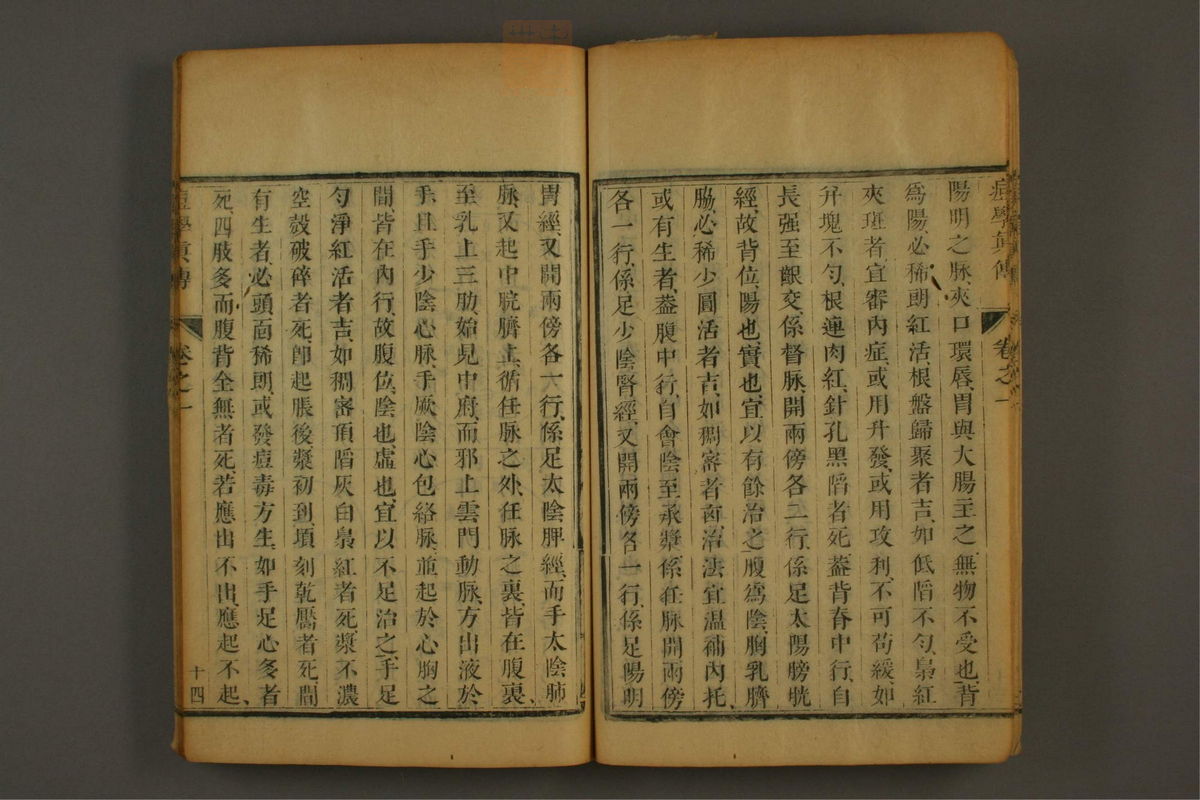 痘學真傳 卷之一
陽明之脉、夾口環唇、胃與大腸主之、無物不受也、背
為陽、必稀朗紅活、根盤歸聚者吉、如低陷不勻、梟紅
夾斑者、宜審內症、或用升發、或用攻利、不可苟緩、如
片塊不勻、根連肉紅、針孔黑陷者死、葢背脊中行、自
長强至齦交、係督脉、開兩傍各二行、係足太陽膀胱
經、故背位、陽也、實也、宜以有餘治之、腹為陰、胸乳臍
脇、必稀少圓活者吉、如稠密者凶、治法宜溫補內托、
或有生者、葢腹中行、自會陰至承漿、係任脉、開兩傍
各一行、係足少陰腎經、又開兩傍各一行、係足陽明
胃經、又開兩傍各一行、係足太陰脾經、而手太陰肺
脉、又起中脘臍上、循任脉之外、任脉之裏、皆在腹裏、
至乳上三肋、始見中府、而邪上雲門動脉、方出液於
手、且手少陰心脉、手厥陰心包絡脉、並起於心胸之
間、皆在內行、故腹位、陰也、虛也、宜以不足治之、手足
勻淨紅活者吉、如稠密頂陷灰白梟紅者死、漿不濃
空殼破碎者死、卽起脹後、漿初到、頃刻乾靨者死、間
有生者、必頭面稀朗、或發痘毒方生、如手足心多者
死、四肢多而腹背全無者死、若應出不出、應起不起、
痘學真傳 卷之一
十四